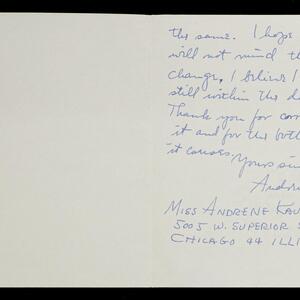 the same. I hope
will not mind th
change, I believe I
still within the d
Thank you for corr
it and for the both
it causes, Yours sin
Andre
MISS ANDRENE KAU
5005 W. SUPERIOR S
CHICAGO 44 ILLI